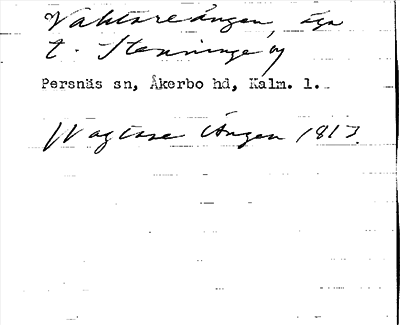 Vaktareängen, äga
t. Stenninge by
Persnäs sn, Åkerbo hd, Kalm. l.
Wagtare Ängen 1813.